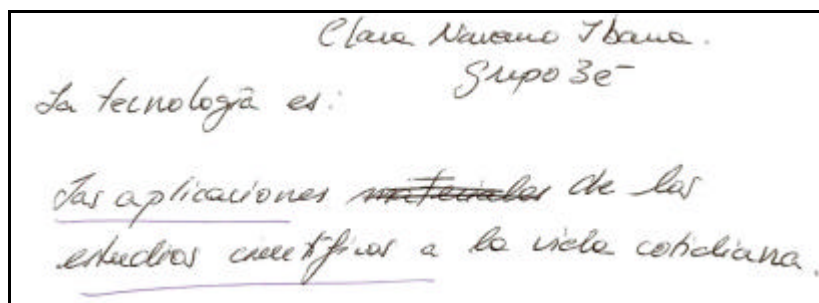 Clara Navarro Ibarra.
Grupo 3e
La tecnología es:
Las aplicaciones materiales de los
estudios científicos a la vida cotidiana.